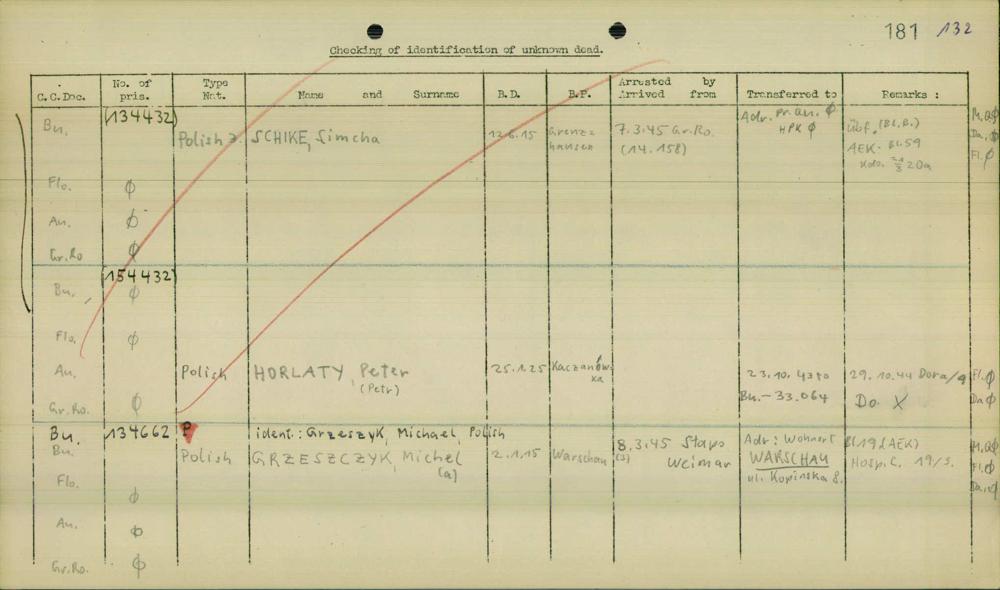 181 132
Checking of identification of unknown dead.
C.C.Doc. No. of pris. Type Nat. Name and Surname B.D. B.P. Arrested by Arrived from Transferred to Remarks :
Bu. (134432) Adr. pr. au. ϕ M.aϕ
Polish J. SCHIKE, Simcha 12.6.15 Grenz= 7.3.45 Gr.Ro. HPK ϕ Übf. (Bl.B.) Da.ϕ
hausen (14.158) AEK. Bl.59 Fl.ϕ
Kdo. 20a
Flo. ϕ
Au. ϕ
Gr.Ro ϕ
(154432)
Bu. ϕ
Flo. ϕ
Au. Polish HORLATY, Peter 25.1.25 Kaczanów- 29.10.44 Dora/ Fl.ϕ
(Petr) ka Bu.-33.064 Do. X Daϕ
Gr.Ro. ϕ
Bu. 134662 P ident.: Grzeszyk, Michael, Polish
Bu. Polish GRZESZCZYK, Michel 2.1.15 Warschau 8.3.45 Stapo Adr: Wohnort Bl19(AEK) M.aϕ
(a) (3) Weimar WARSCHAU Hosp.C. 19/3. Fl.ϕ
Flo. ϕ ul. Kopinska 8. Da.ϕ
Au. ϕ
Gr.Ro. ϕ